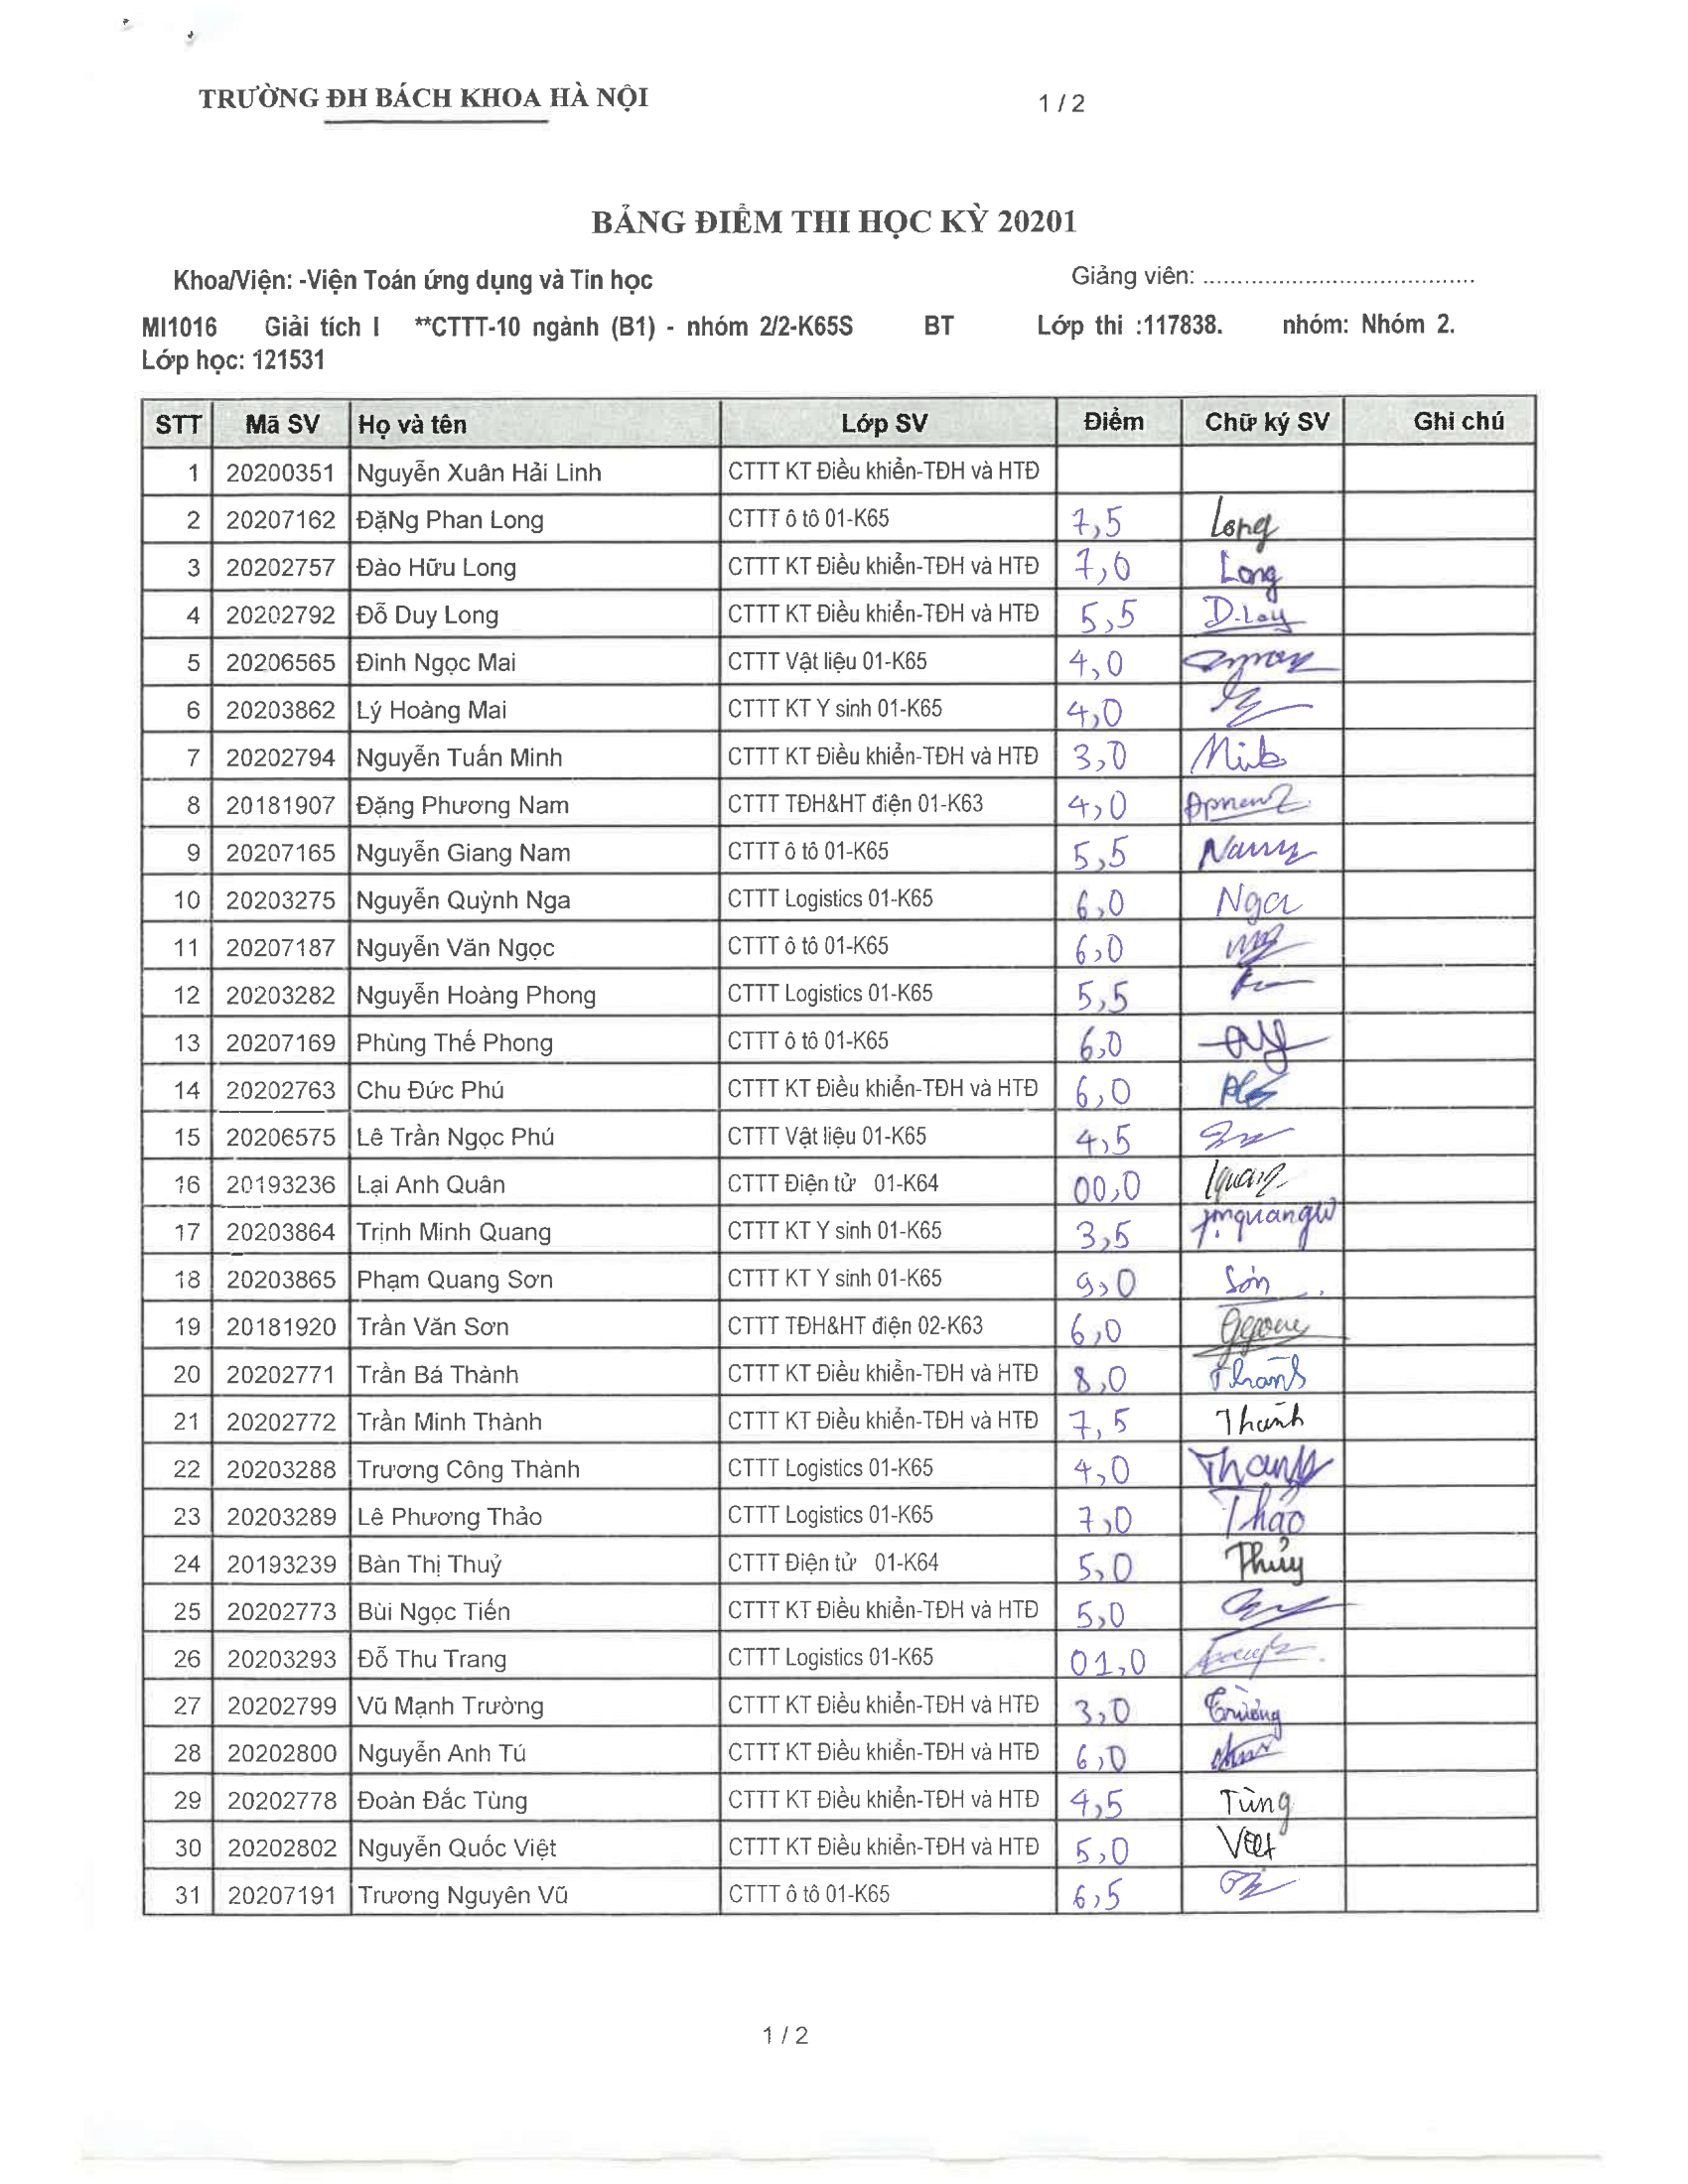 TRƯỜNG ĐH BÁCH KHOA HÀ NỘI 1 / 2
BẢNG ĐIỂM THI HỌC KỲ 20201
Khoa/Viện: -Viện Toán ứng dụng và Tin học Giảng viên: ........................................
MI1016 Giải tích I **CTTT-10 ngành (B1) - nhóm 2/2-K65S BT Lớp thi :117838. nhóm: Nhóm 2.
Lớp học: 121531
STT Mã SV Họ và tên Lớp SV Điểm Chữ ký SV Ghi chú
1 20200351 Nguyễn Xuân Hải Linh CTTT KT Điều khiển-TĐH và HTĐ
2 20207162 ĐặNg Phan Long CTTT ô tô 01-K65 7,5 Long
3 20202757 Đào Hữu Long CTTT KT Điều khiển-TĐH và HTĐ 7,0 Long
4 20202792 Đỗ Duy Long CTTT KT Điều khiển-TĐH và HTĐ 5,5
5 20206565 Đinh Ngọc Mai CTTT Vật liệu 01-K65 4,0
6 20203862 Lý Hoàng Mai CTTT KT Y sinh 01-K65 4,0
7 20202794 Nguyễn Tuấn Minh CTTT KT Điều khiển-TĐH và HTĐ 3,0
8 20181907 Đặng Phương Nam CTTT TĐH&HT điện 01-K63 4,0
9 20207165 Nguyễn Giang Nam CTTT ô tô 01-K65 5,5
10 20203275 Nguyễn Quỳnh Nga CTTT Logistics 01-K65 6,0 Nga
11 20207187 Nguyễn Văn Ngọc CTTT ô tô 01-K65 6,0
12 20203282 Nguyễn Hoàng Phong CTTT Logistics 01-K65 5,5
13 20207169 Phùng Thế Phong CTTT ô tô 01-K65 6,0
14 20202763 Chu Đức Phú CTTT KT Điều khiển-TĐH và HTĐ 6,0
15 20206575 Lê Trần Ngọc Phú CTTT Vật liệu 01-K65 4,5
16 20193236 Lại Anh Quân CTTT Điện tử 01-K64 00,0
17 20203864 Trịnh Minh Quang CTTT KT Y sinh 01-K65 3,5
18 20203865 Phạm Quang Sơn CTTT KT Y sinh 01-K65 9,0 Sơn
19 20181920 Trần Văn Sơn CTTT TĐH&HT điện 02-K63 6,0
20 20202771 Trần Bá Thành CTTT KT Điều khiển-TĐH và HTĐ 8,0 Thành
21 20202772 Trần Minh Thành CTTT KT Điều khiển-TĐH và HTĐ 7,5 Thành
22 20203288 Trương Công Thành CTTT Logistics 01-K65 4,0
23 20203289 Lê Phương Thảo CTTT Logistics 01-K65 7,0 Thảo
24 20193239 Bàn Thị Thuỷ CTTT Điện tử 01-K64 5,0 Thủy
25 20202773 Bùi Ngọc Tiến CTTT KT Điều khiển-TĐH và HTĐ 5,0
26 20203293 Đỗ Thu Trang CTTT Logistics 01-K65 01,0
27 20202799 Vũ Mạnh Trường CTTT KT Điều khiển-TĐH và HTĐ 3,0 Trường
28 20202800 Nguyễn Anh Tú CTTT KT Điều khiển-TĐH và HTĐ 6,0
29 20202778 Đoàn Đắc Tùng CTTT KT Điều khiển-TĐH và HTĐ 4,5 Tùng
30 20202802 Nguyễn Quốc Việt CTTT KT Điều khiển-TĐH và HTĐ 5,0 Việt
31 20207191 Trương Nguyên Vũ CTTT ô tô 01-K65 6,5
1 / 2